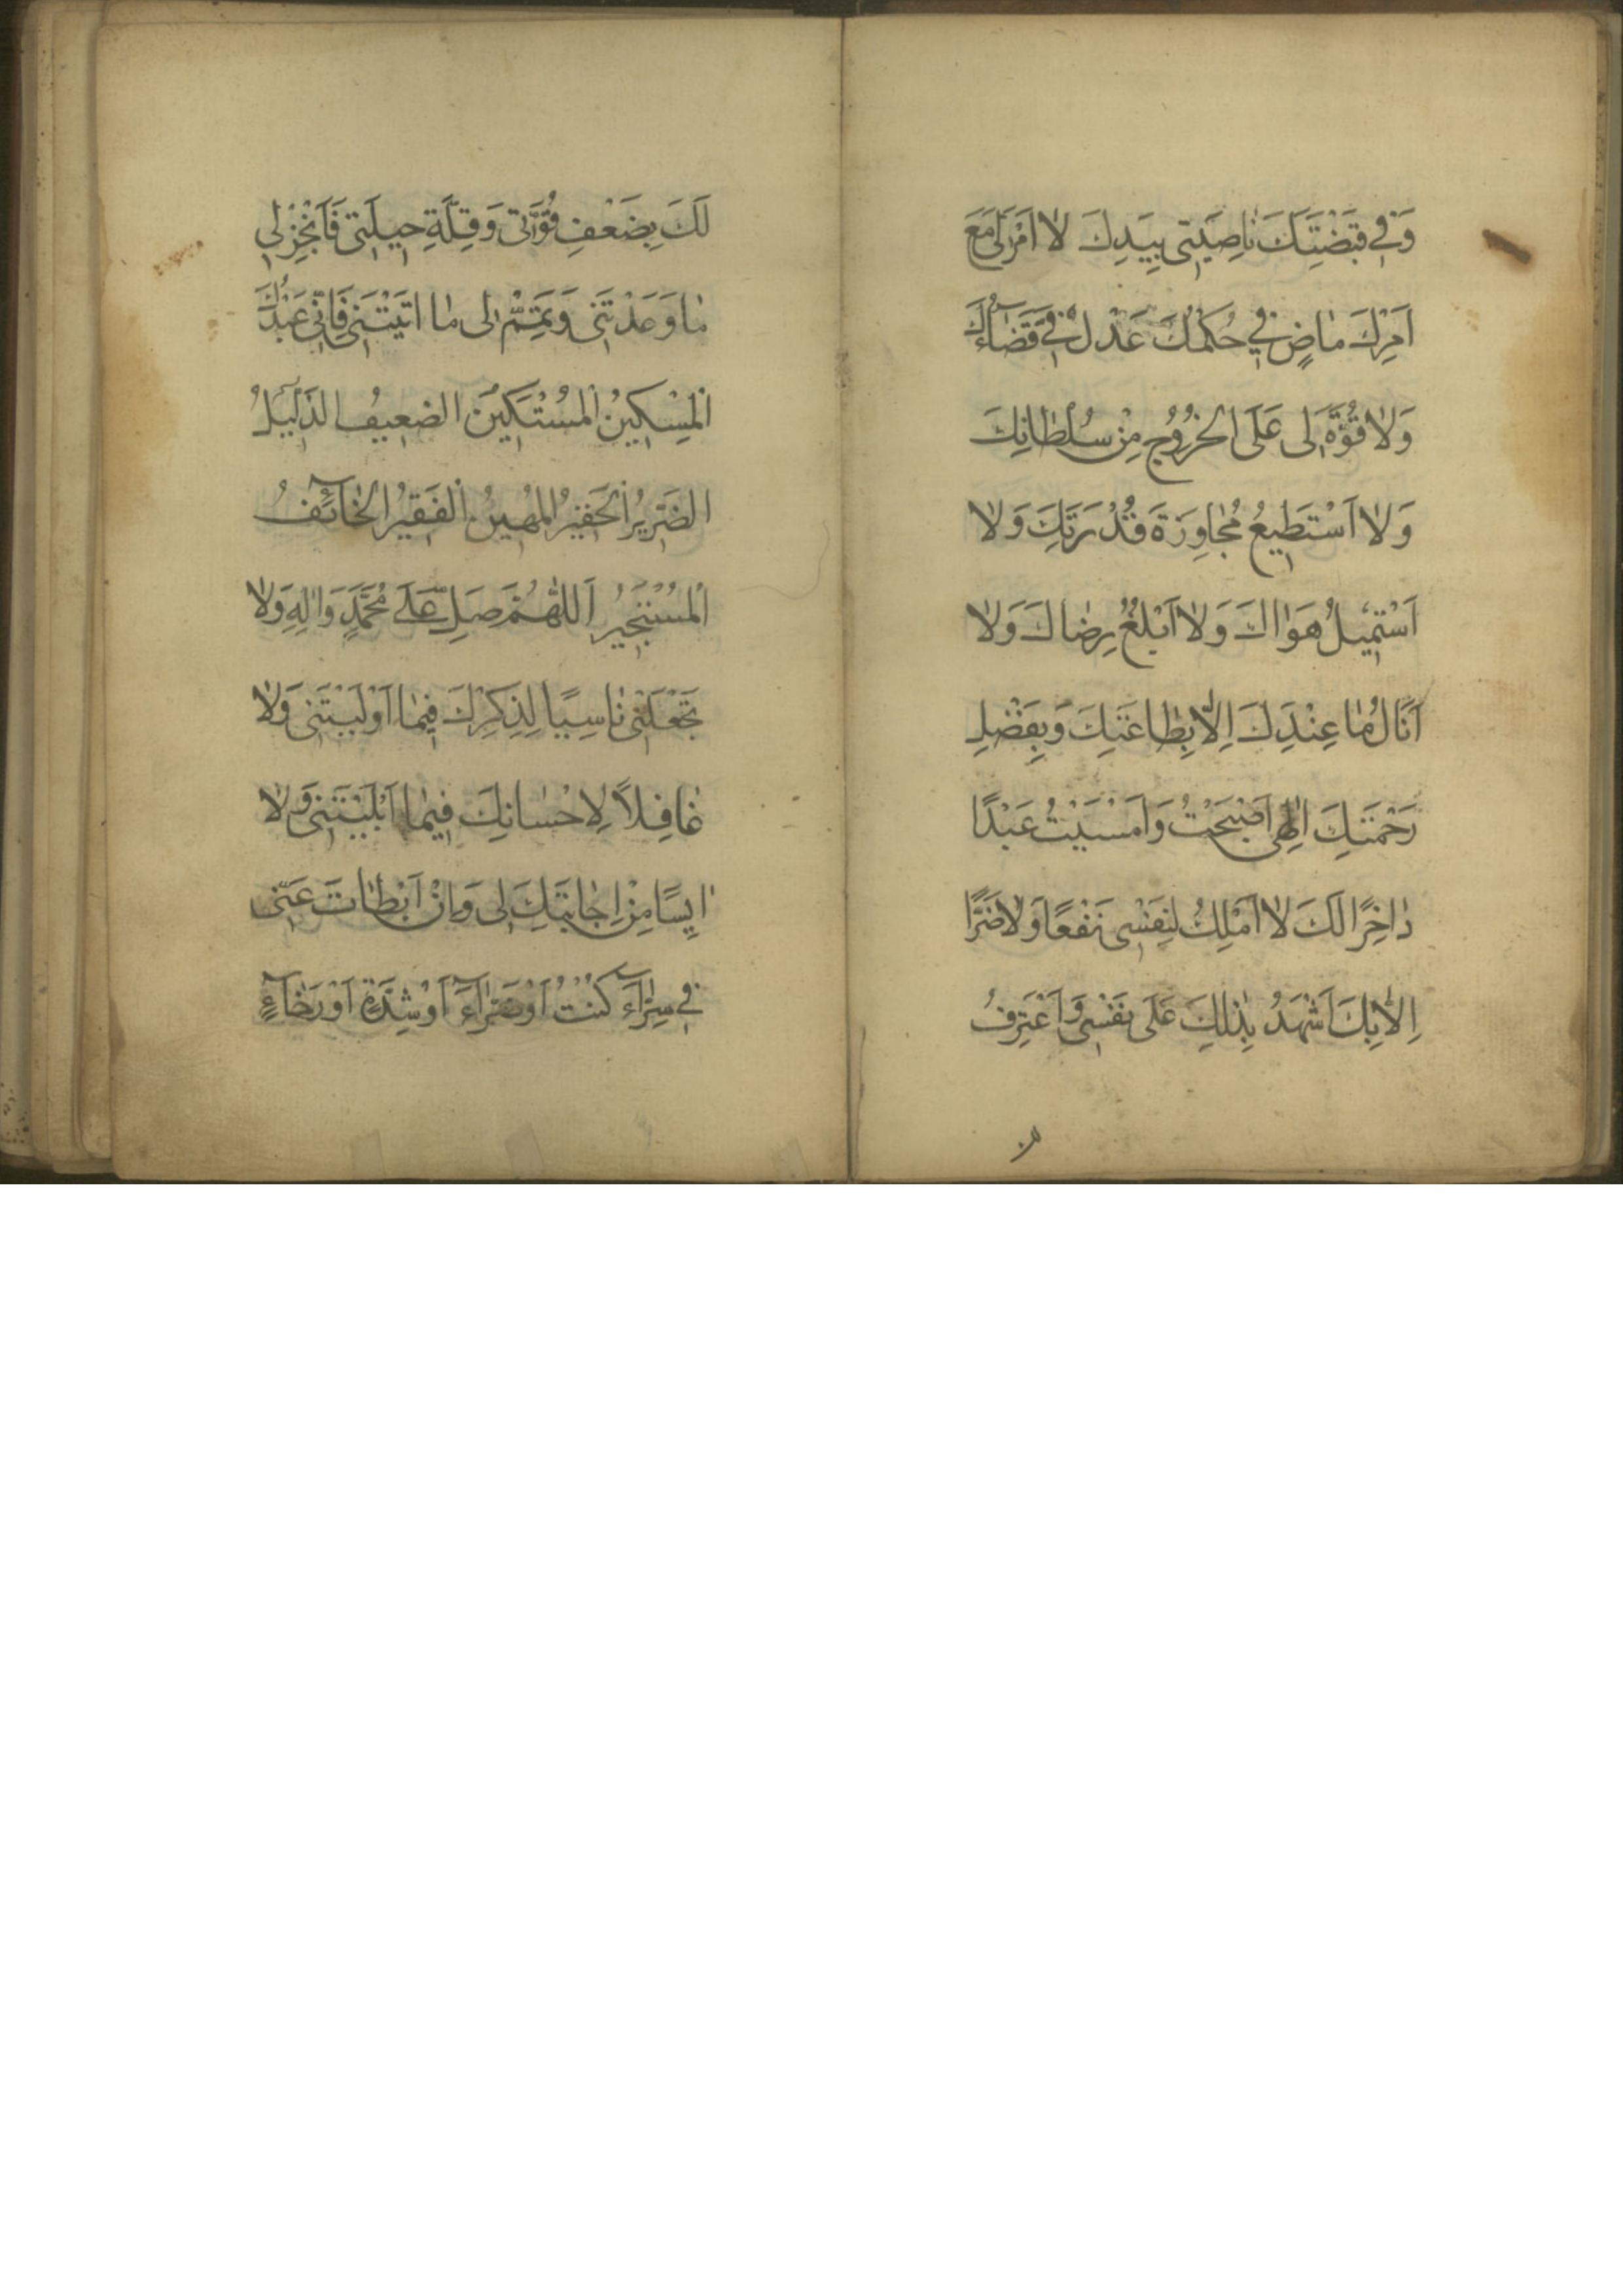 وَفِي قَبْضَتِكَ نَاصِيَتِي بِيَدِكَ لَا اَمْرَ لِي مَعَ
اَمْرِكَ مَاضٍ فِي حُكْمُكَ عَدْلٌ فِي قَضَاۤؤُكَ
وَلَا قُوَّةَ لِي عَلَى الْخُرُوْجِ مِنْ سُلْطَانِكَ
وَلَا اَسْتَطِيعُ مُجَاوَزَةَ قُدْرَتِكَ وَلَا
اَسْتَمِيلُ هَوَاكَ وَلَا اَبْلُغُ رِضَاكَ وَلَا
اَنَالُ مَا عِنْدَكَ اِلَّا بِطَاعَتِكَ وَبِفَضْلِ
رَحْمَتِكَ اِلٰهِي اَصْبَحْتُ وَاَمْسَيْتُ عَبْدًا
دَاخِرًا لَكَ لَا اَمْلِكُ لِنَفْسِي نَفْعًا وَلَا ضَرًّا
اِلَّا بِكَ اَشْهَدُ بِذٰلِكَ عَلَى نَفْسِي وَاَعْتَرِفُ
لَكَ بِضَعْفِ قُوَّتِي وَقِلَّةِ حِيلَتِي فَاَنْجِزْ لِي
مَا وَعَدْتَنِي وَتَمِّمْ لِي مَا اتَيْتَنِي فَاِنِّي عَبْدُكَ
الْمِسْكِينُ الْمُسْتَكِينُ الضَعِيفُ الذَلِيلُ
الضَرِيرُ الْحَقِيرُ الْمُهِينُ الْفَقِيرُ الْخَاۤئِفُ
الْمُسْتَجِيرُ اَللّٰهُمَّ صَلِّ عَلَى مُحَمَّدٍ وَاٰلِهِ وَلَا
تَجْعَلْنِي نَاسِيًا لِذِكْرِكَ فِيمَا اَوْلَيْتَنِي وَلَا
غَافِلًا لِاِحْسَانِكَ فِيمَا اَبْلَيْتَنِي وَلَا
اٰيِسًا مِنْ اِجَابَتِكَ لِي وَاِنْ اَبْطَاَتَ عَنِّي
فِي سَرَّاۤءَ كُنْتُ اَوْ ضَرَّاۤءَ اَوْ شِدَّةٍ اَوْ رَخَاۤءٍ